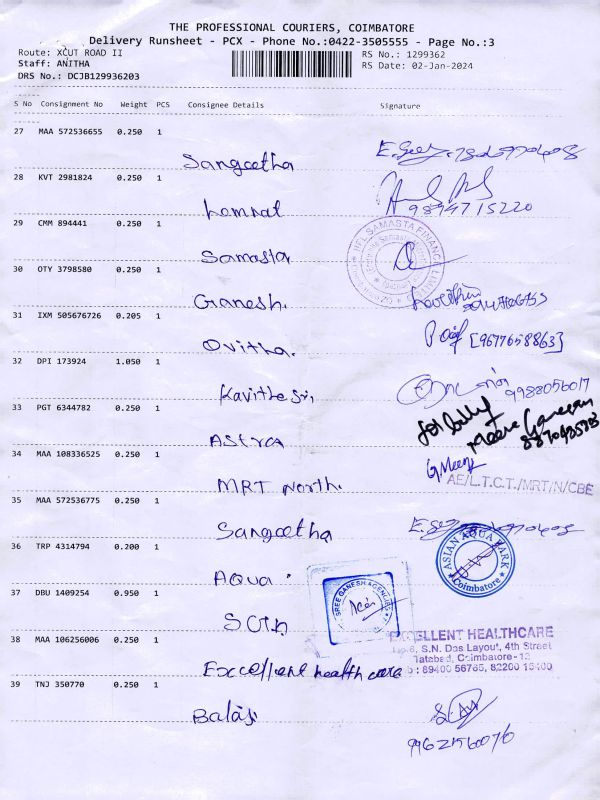 THE PROFESSIONAL COURIERS, COIMBATORE
Delivery Runsheet - PCX - Phone No.:0422-3505555 - Page No.:3
Route: XCUT ROAD II
RS No.: 1299362
Staff: ANITHA
RS Date: 02-Jan-2024
DRS No.: DCJB129936203
S No Consignment No Weight PCS Consignee Details Signature
27 MAA 572536655 0.250 1
Sangeetha
28 KVT 2981824 0.250 1
9894715220
29 CMM 894441 0.250 1
Samasta
IIFL SAMASTA FINANCE LIMITED
30 OTY 3798580 0.250 1
Ganesh.
31 IXM 505676726 0.205 1
Ovitha.
[9677658863]
32 DPI 173924 1.050 1
Kavithesri,
9988056017
33 PGT 6344782 0.250 1
Astra
34 MAA 108336525 0.250 1
MRT North.
G.Meena
AE/L.T.C.T./MRT/N/CBE
35 MAA 572536775 0.250 1
Sangeetha
36 TRP 4314794 0.200 1
Aqua
ASIAN AQUA PARK
Coimbatore
37 DBU 1409254 0.950 1
SREE GANESH AGENCIES
38 MAA 106256006 0.250 1
Excellent health care
EXCELLENT HEALTHCARE
No.6, S.N. Das Layout, 4th Street
Tatabad, Coimbatore-12
: 89400 56765, 82200 15400
39 TNJ 350770 0.250 1
Balaji